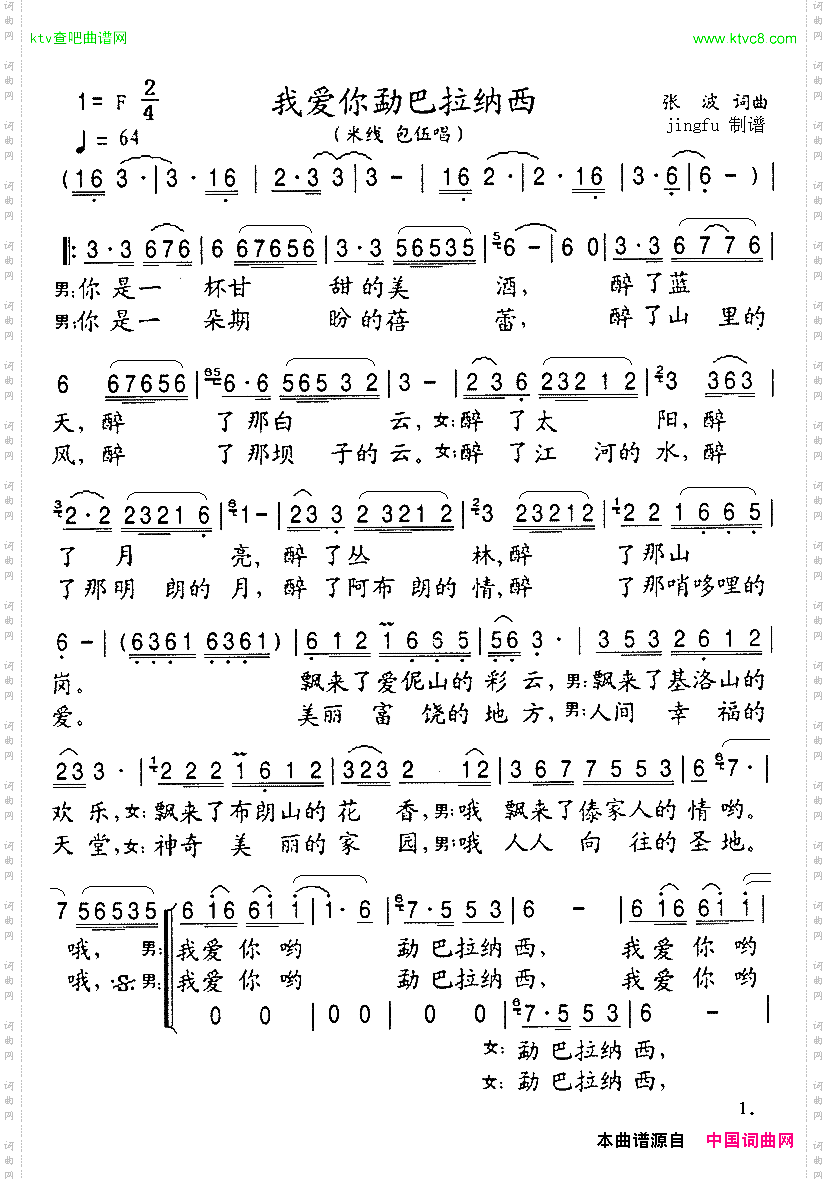 ktv查吧曲谱网 www.ktvc8.com
1= F 2/4 我爱你勐巴拉纳西 张 波 词曲
♩= 64 (米线 包伍唱) jingfu 制谱
(16 3·|3·16 | 2·3 3|3 – |16 2·|2·16 |3·6|6 –)|
‖: 3·3 676 |6 67656 |3·3 56535 |5 6 – |6 0 |3·3 6 7 7 6 |
男:你是一 杯甘 甜的美 酒, 醉了蓝
男:你是一 朵期 盼的蓓 蕾, 醉了山 里的
6 67656 |65 6·6 5653 2 |3 – |2 3 6 2321 2 |2 3 363 |
天,醉 了那白 云,女:醉 了太 阳,醉
风,醉 了那坝 子的云。女:醉 了江 河的水,醉
3 2·2 2321 6 |6 1 – |23 3 2 321 2 |2 3 23212 |1 2 2 1 6 6 5 |
了 月 亮,醉 了丛 林,醉 了那山
了那明 朗的 月,醉了阿布 朗的 情,醉 了那哨哆哩的
6 – |(6361 6361)|6 1 2 1 6 6 5 |56 3· |3 5 3 2 6 1 2 |
岗。 飘来了爱伲山的 彩 云,男:飘来了基洛山的
爱。 美丽 富 饶的 地 方,男:人间 幸 福的
23 3· |1 2 2 2 1 6 1 2 |323 2 12 |3 6 7 7 5 5 3 |6 6 7·|
欢 乐,女:飘来了布朗山的 花 香,男:哦 飘来了傣家人的 情 哟。
天 堂,女:神奇 美 丽的 家 园,男:哦 人人 向 往的 圣 地。
7 56535 |6 16 61 1 |1·6 |6 7·5 5 3 |6 – |6 16 61 1 |
哦, 男:我爱 你 哟 勐 巴拉纳 西, 我 爱 你 哟
哦, 男:我爱 你 哟 勐 巴拉纳 西, 我 爱 你 哟
0 0 |0 0 |0 0 |6 7·5 5 3 |6 – |
女: 勐 巴拉纳 西,
女: 勐 巴拉纳 西,
1.
本曲谱源自 中国词曲网
词曲网